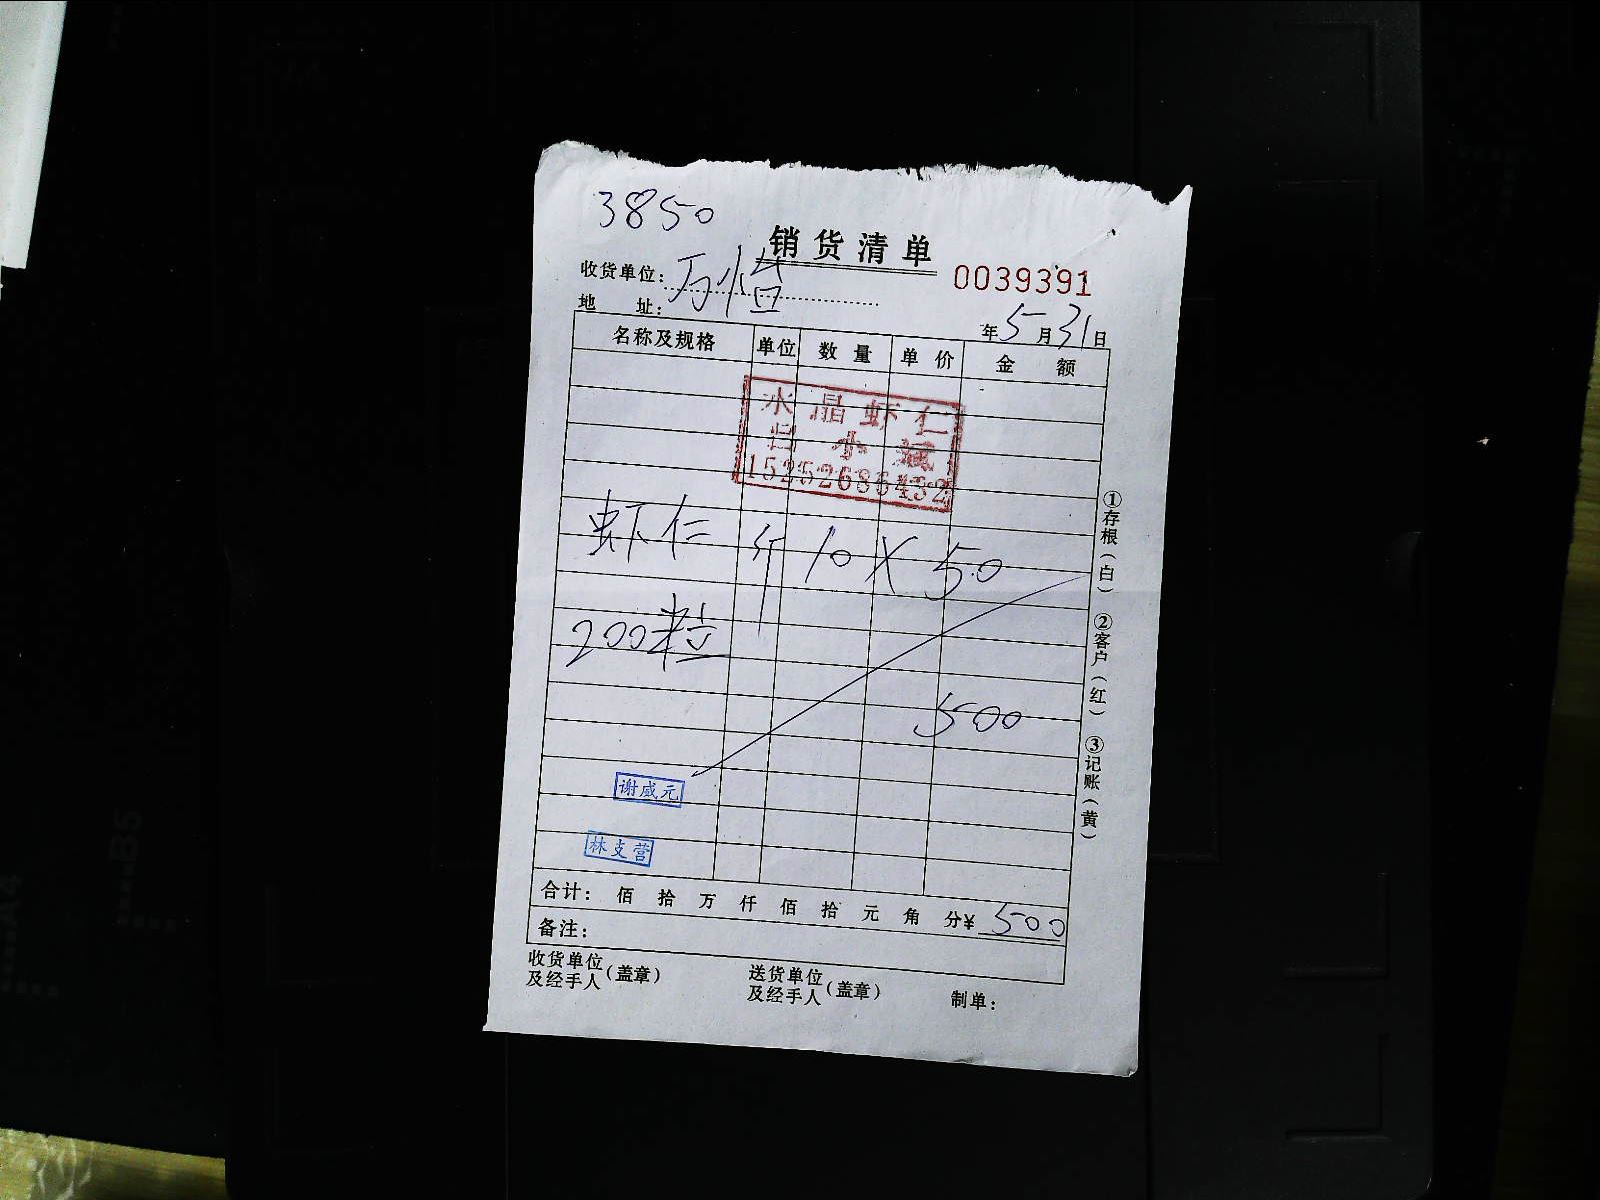 3850
销货清单
收货单位: 万
0039391
地 址:
年5月31日
名称及规格 单位 数量 单价 金额
水晶虾仁
小
15252686432
虾仁 斤 10 X 50
200粒
500
谢咸元
林支营
合计: 佰 拾 万 仟 佰 拾 元 角 分¥ 500
备注:
收货单位及经手人(盖章)
送货单位及经手人(盖章)
制单:
①存根(白) ②客户(红) ③记账(黄)
B5
A4